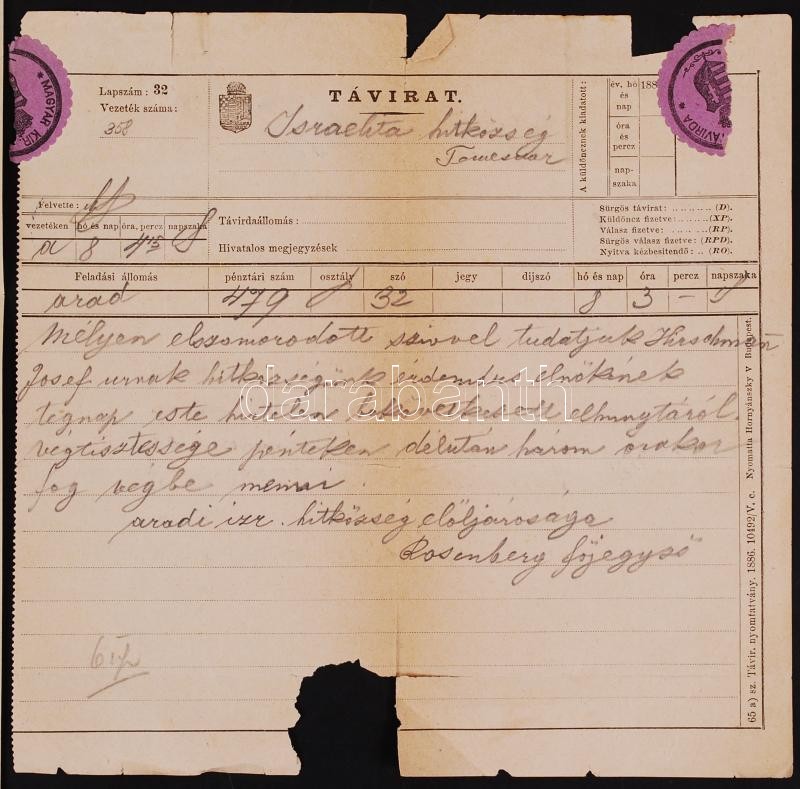 Lapszám : 32
Vezeték száma :
358
TÁVIRAT.
Israelita hitközség
Temesvar
A küldöncznek kiadatott :
év, hó és nap
188
óra és percz
nap-szaka
MAGYAR KIR
TÁVIRDA
Felvette :
vezetéken hó és nap óra, percz napszaka
a 8 4 15
Távirdaállomás :
Hivatalos megjegyzések
Sürgős távirat: (D).
Küldöncz fizetve: (XP).
Válasz fizetve: (RP).
Sürgős válasz fizetve: (RPD).
Nyitva kézbesitendő: (RO).
Feladási állomás pénztári szám osztály szó jegy díjszó hó és nap óra percz napszaka
arad 479 32 8 3 —
Mélyen elszomorodott szivvel tudatjuk Hirschmann
Josef urnak hitközségünk érdemdus elnökének
tegnap este hirtelen bekövetkezett elhunytáról.
végtisztessége pénteken délután három orakor
fog végbe menni.
aradi izr. hitközség elöljárosága
Rosenberg főjegyző
65 a) sz. Távir. nyomtatvány. 1886. 10492/V. c. Nyomatta Hornyánszky V Budapest.
darabanth